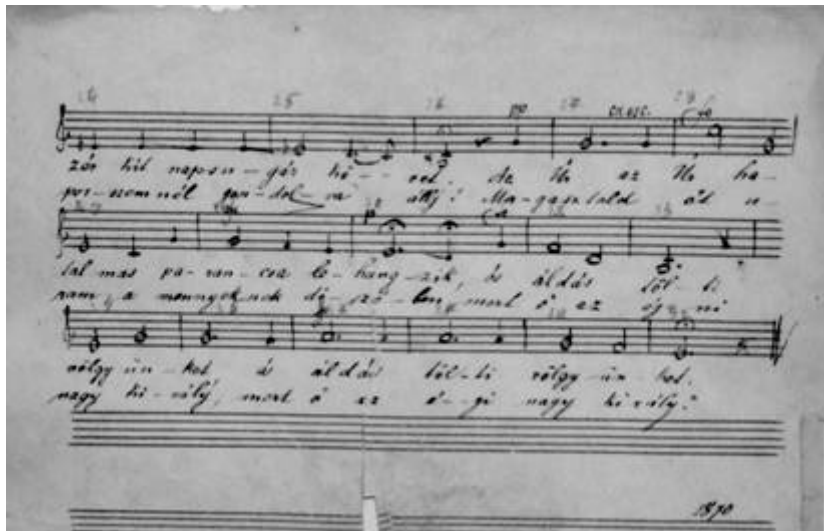 24 25 26 pp 27 cresc. 28
zór kit napsu-gár kö-- vet. Az Úr az Úr ha-
por-szemnél gondol-va állj! Ma-gasztald őt u-
tal mas pa-ran-csa le-hang-zik, és áldás töl- ti
ram a mennyeknek dí-szé-ben mert ő az égi
völgy ün-ket és áldás töl-ti völgy-ün-ket.
nagy ki-rály, mert ő az é-gi nagy király!
1870